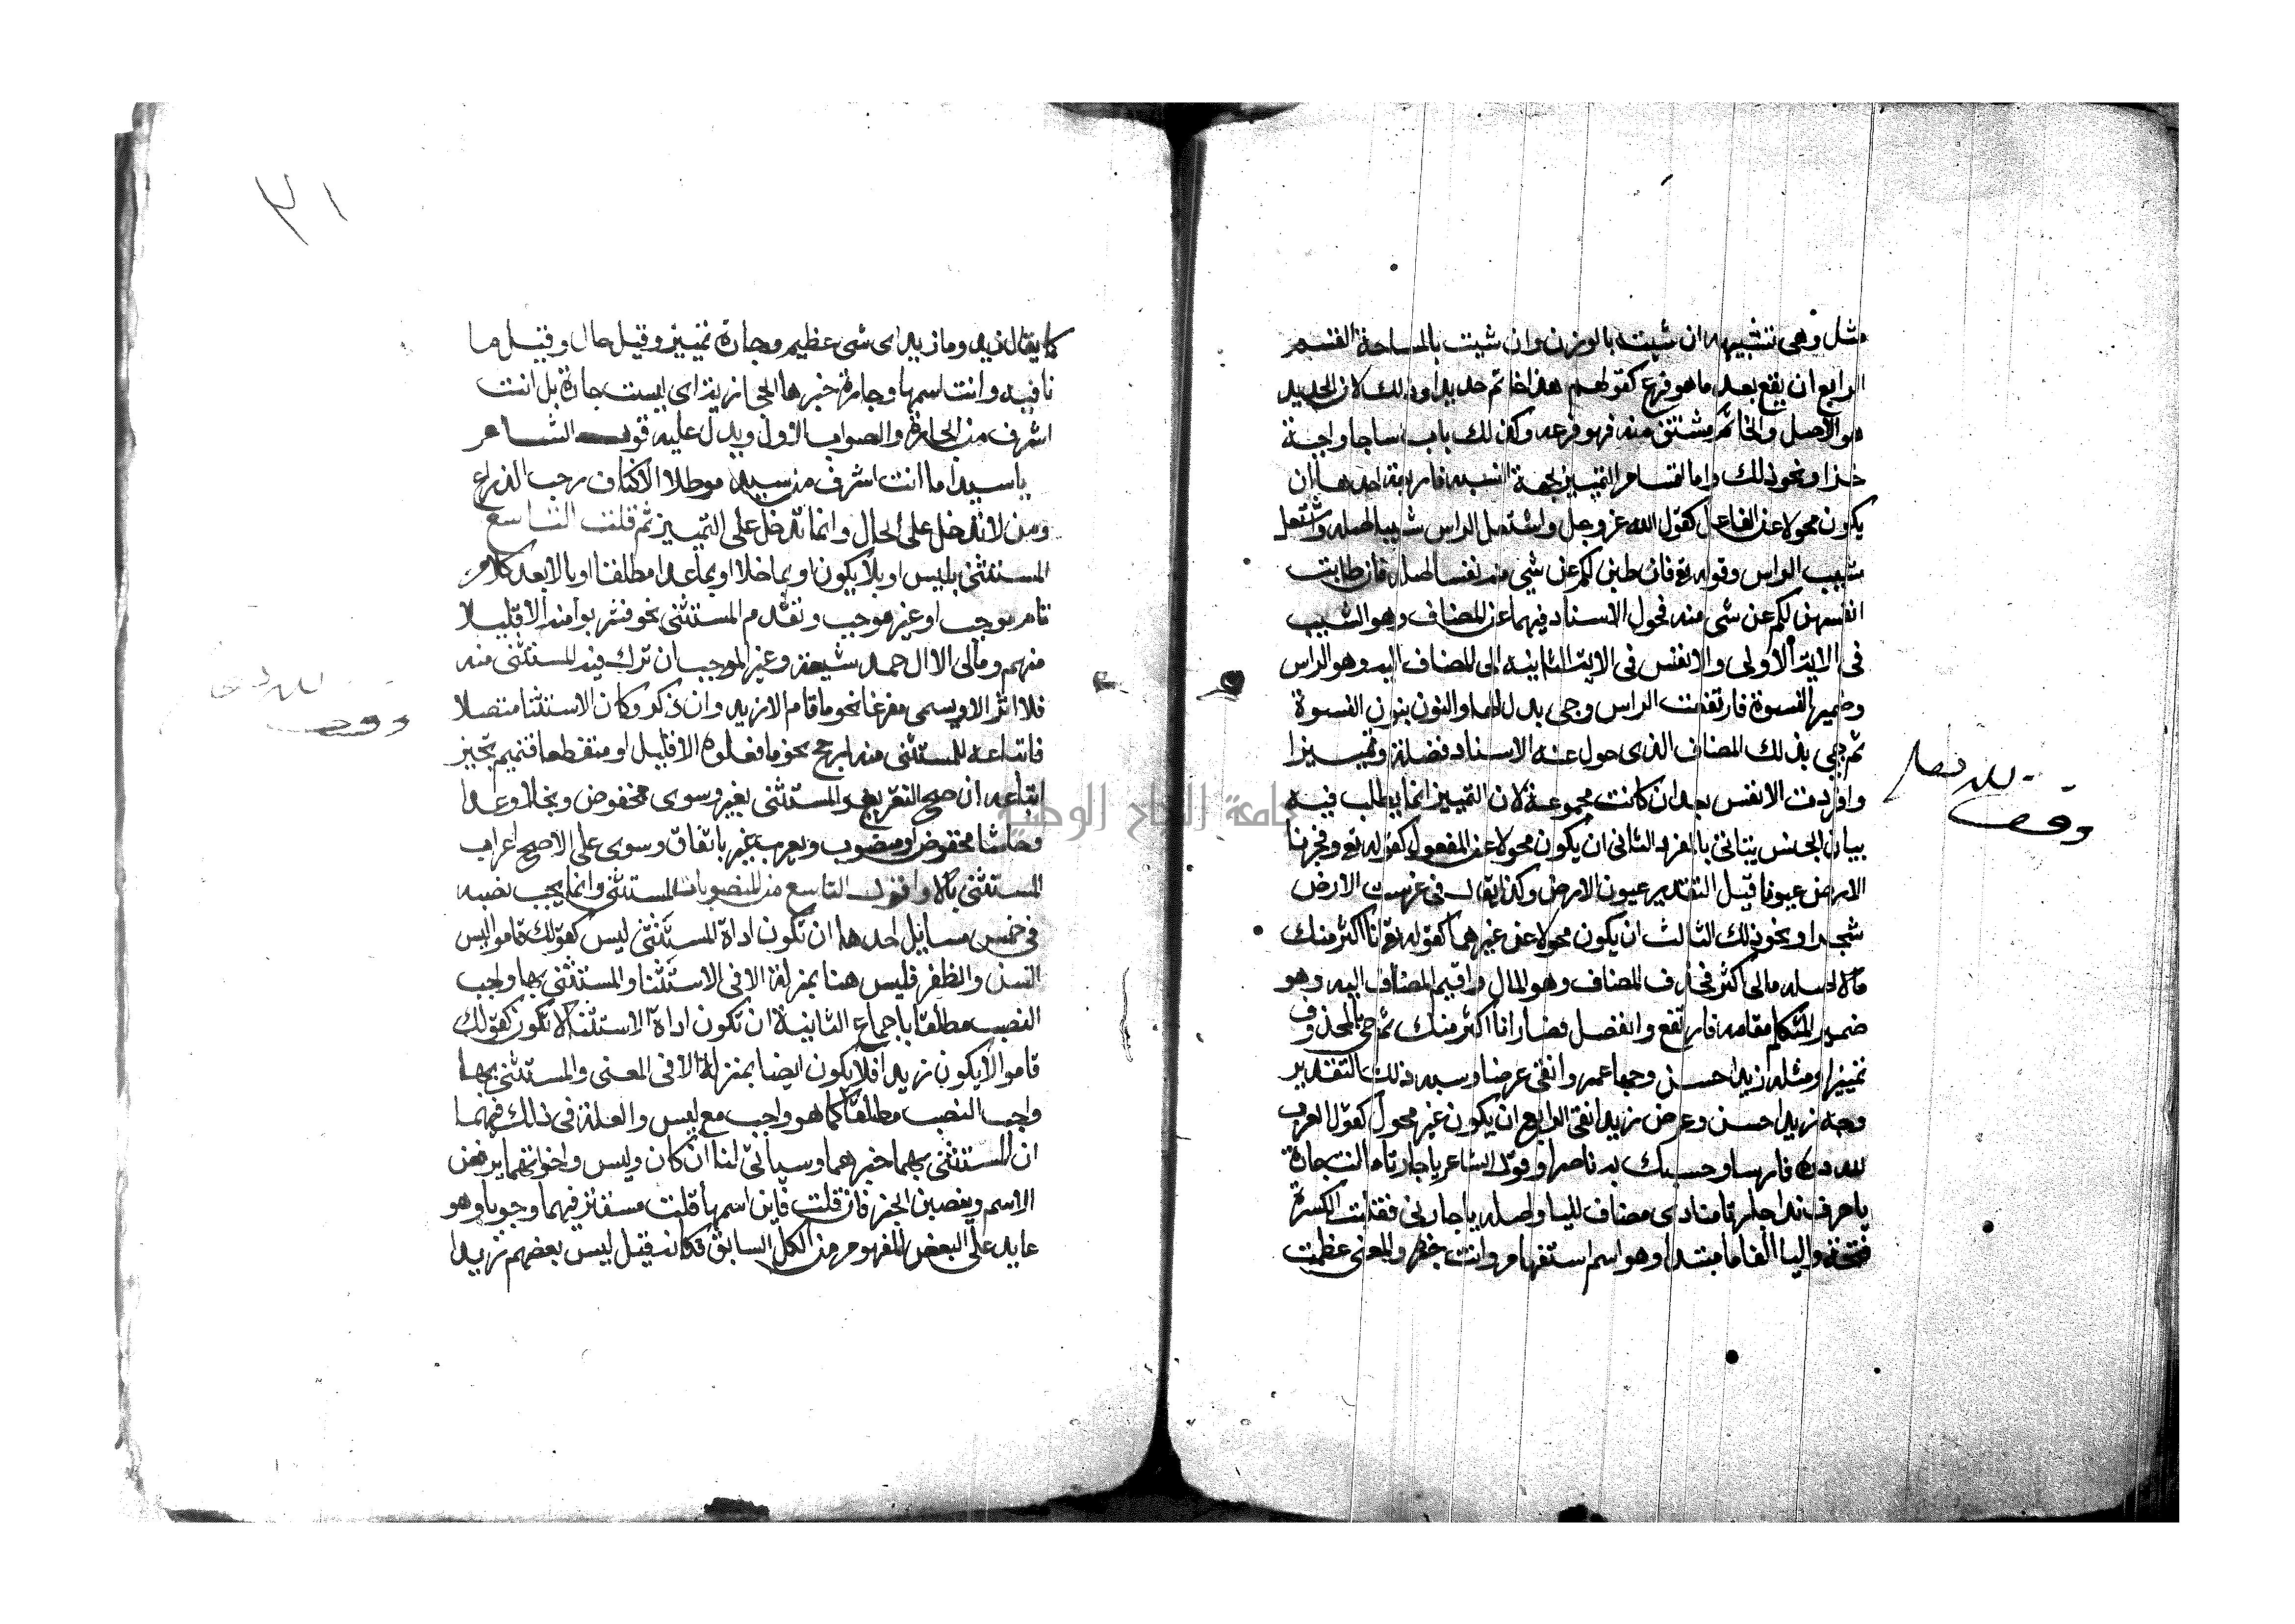 مثل وهى تشبيهه ان شيت بالوزن وان شيت بالمساحة القسم
الرابع ان يقع بعد ما هو فرع كقولهم هذا خاتم حديدا وذلك لان الحديد
هو الاصل والخاتم مشتق منه فهو فرعه وكذلك باب ساجا وجبة
خزا ونحو ذلك واما اقسام التمييز لجهة النسبه فاربعة احدها ان
يكون محولا عن الفاعل كقول الله عز وجل واشتعل الراس شيبا اصله واشتعل
شيب الراس وقوله تع فان طبن لكم عن شى منه نفسا اصله فان طابت
انفسهن لكم عن شى منه فحول الاسناد فيهما عن المضاف وهو الشيب
فى الاية الاولى والانفس فى الاية الثانيه الى المضاف اليه وهو الراس
وضمير النسوة فارتفعت الراس وجى بدل الها والنون بنون النسوة
ثم جى بذلك المضاف الذى حول عنه الاسناد فضلة وتمييزا
وافردت الانفس بعد ان كانت مجموعة لان التمييز انما يطلب فيه
بيان الجنس يتاتى بالمفرد الثانى ان يكون محولا عن المفعول كقوله تع وفجرنا
الارض عيونا قيل التقدير عيون الارض وكذا يقال فى غرست الارض
شجرا ونحو ذلك الثالث ان يكون محولا عن غيرهما كقوله تع انا اكثر منك
مالا اصله مالى اكثر فحذف المضاف وهو المال واقيم المضاف اليه وهو
ضمير المتكلم مقامه فارتفع وانفصل فصار انا اكثر منك ثم جى بالمحذوف
تمييزا ومثله زيد احسن وجها عمرو انقى عرضا وسبه ذلك التقدير
وجه زيد احسن وعرض زيد انقى الرابع ان يكون غير محول كقول العرب
لله دره فارسا وحسبك به ناصرا وقول الشاعر يا جارتاه انت جارة
يا حرف ندا جارتا منادى مضاف لليا واصله يا جارتى فقلبت الكسرة
فتحة واليا الفا ما مبتدا وهو اسم استفهام وانت خبره والمعنى عظمت
وقف لله تعالى
٣١
كما يقال زيد وما زيد اى شى عظيم وجارة تمييز وقيل حال وقيل ما
نافيه وانت اسمها وجارة خبرها الحجازية اى لست جارة بل انت
اشرف من الجارة والصواب الاول ويدل عليه قول الشاعر
يا سيدا ما انت اشرف من سيد موطا الاكناف رحب الذراع
ومن لا تدخل على الحال وانما تدخل على التمييز ثم قلت التاسع
المستثنى بليس او بلا يكون او بما خلا او بما عدا مطلقا او بالا بعد كلام
تام موجب او غير موجب وتقدم المستثنى نحو فشربوا منه الا قليلا
منهم ومالى الا ال احمد شيعة وغير الموجب ان ترك فيه المستثنى منه
فلا اثر الا ويسمى مفرغا نحو ما قام الا زيد وان ذكر وكان الاستثنا متصلا
فاتباعه للمستثنى منه ارجح نحو ما فعلوه الا قليل او منقطعا فتميم تجيز
اتباعه ان صح التفريغ والمستثنى بغير وسوى مخفوض وبخلا وعدا
وحاشا مخفوض او منصوب ويعرب غير باتفاق وسوى على الاصح اعراب
المستثنى بالا واقول التاسع من المنصوبات المستثنى وانما يجب نصبه
فى خمس مسايل احدها ان تكون اداة المستثنى ليس كقولك قاموا ليس
السن والظفر فليس هنا بمنزلة الا فى الاستثنا والمستثنى بها واجب
النصب مطلقا باجماع الثانية ان تكون اداة الاستثنا لا تكون كقولك
قاموا لا يكون زيدا فلا يكون ايضا بمنزلة الا فى المعنى والمستثنى بها
واجب النصب مطلقا كما هو واجب مع ليس والعلة فى ذلك فيهما
ان المستثنى بهما خبرهما وسياتى لنا ان كان وليس واخواتهما يرفعن
الاسم وينصبن الخبر فان قلت فاين اسمها قلت مستتر فيهما وجوبا وهو
عايد على البعض المفهوم من الكل السابق فكانه قيل ليس بعضهم زيدا
وقف لله تعالى
جامعة النجاح الوطنية